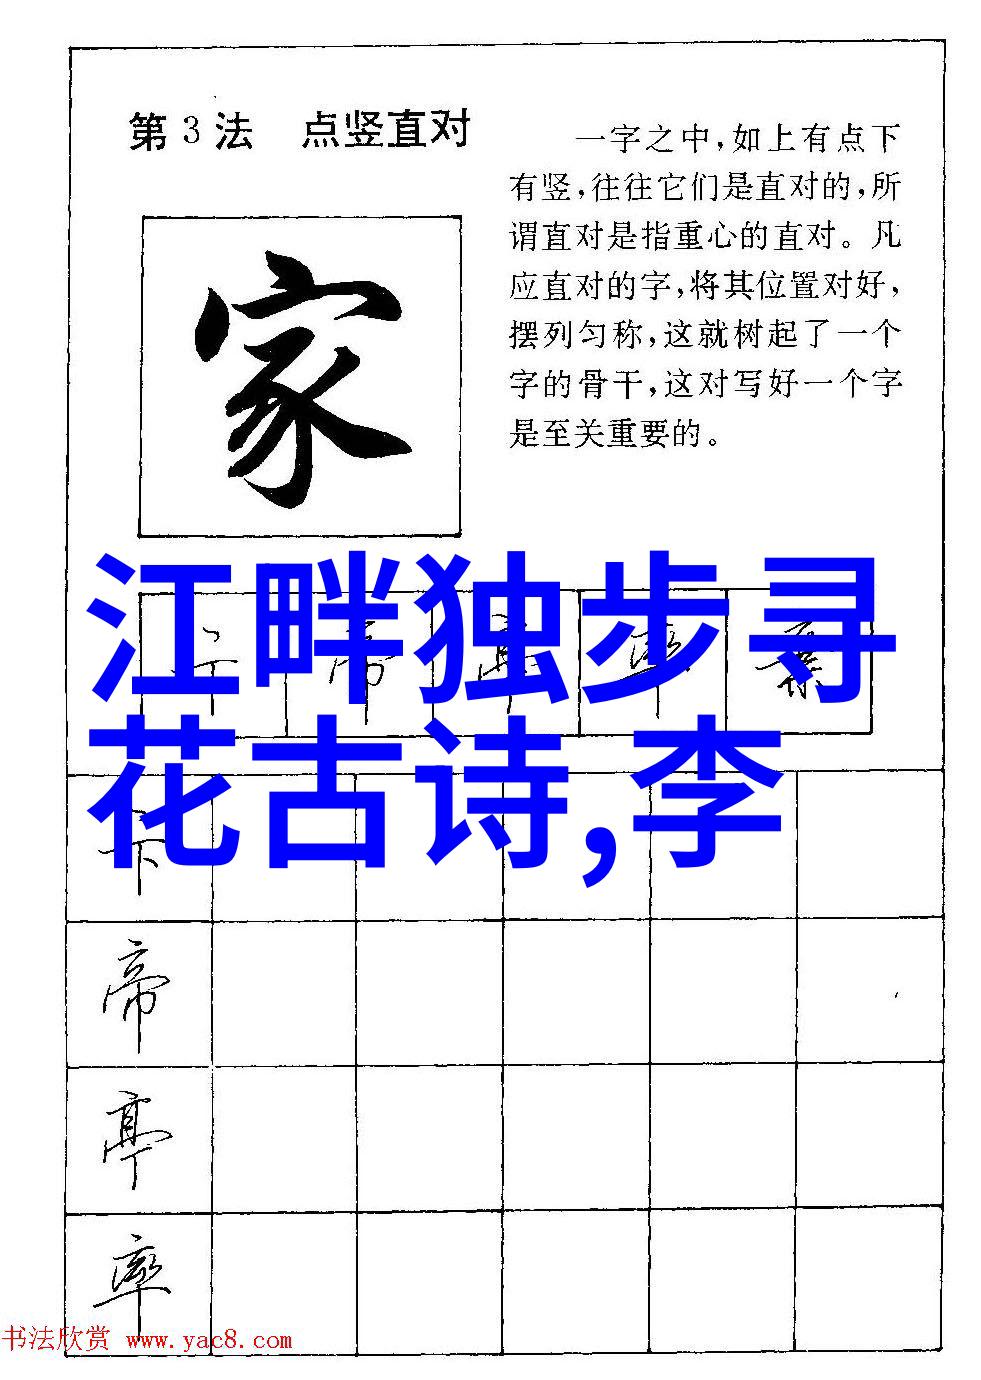 第3法 点竖直对
一字之中,如上有点下
有竖,往往它们是直对的,所
谓直对是指重心的直对。凡
应直对的字,将其位置对好,
摆列匀称,这就树起了一个
字的骨干,这对写好一个字
是至关重要的。
家
江畔独步寻
花古诗,李
卞 帝 亭 率
卞
帝
亭
率
书法欣赏 www.yac8.com